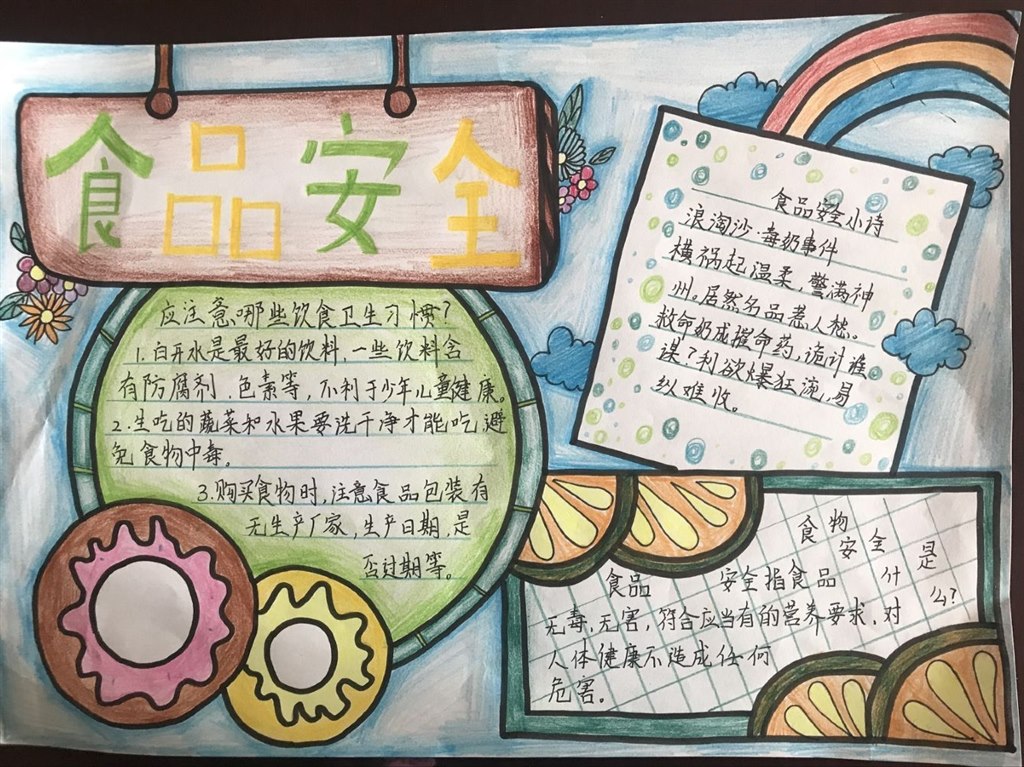 食品安全
应注意哪些饮食卫生习惯?
1.白开水是最好的饮料,一些饮料含
有防腐剂.色素等,不利于少年儿童健康。
2.生吃的蔬菜和水果要洗干净才能吃,避
免食物中毒。
3.购买食物时,注意食品包装有
无生产厂家,生产日期,是
否过期等。
食品安全小诗
浪淘沙·毒奶事件
横祸起温柔,警满神
州。居然名品惹人愁
救命奶成摧命药,诡计谁
谋?利欲爆狂流,易
纵难收。
食物
安全
是
什
么?
食品 安全指食品
无毒,无害,符合应当有的营养要求,对
人体健康不造成任何
危害。